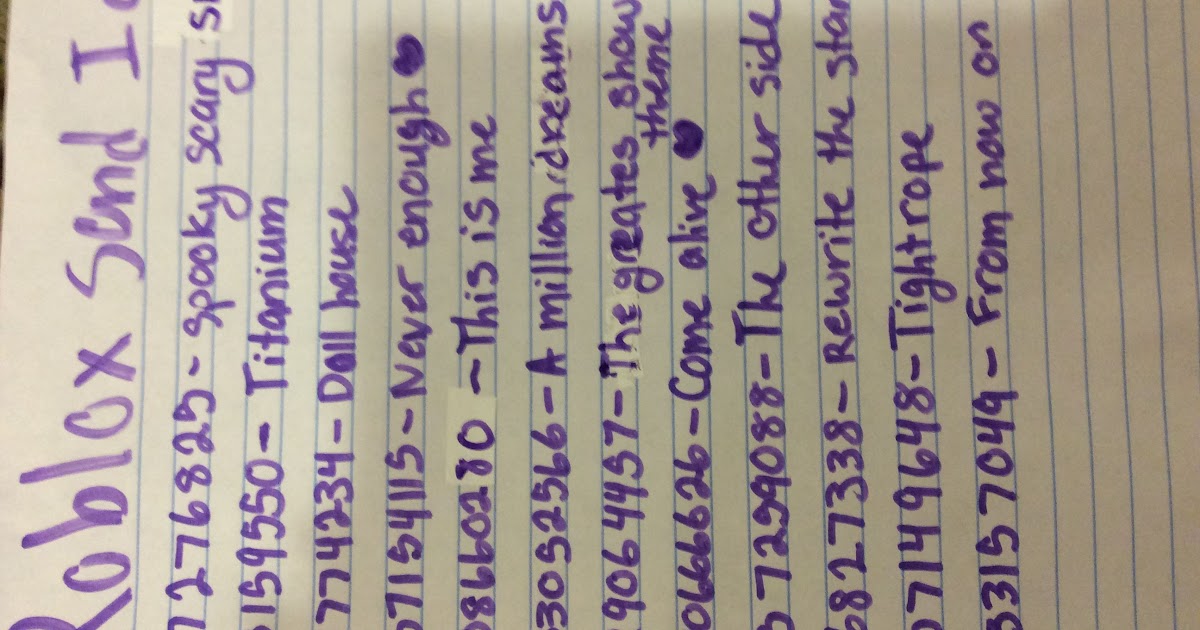 Roblox Send I
7276825 - Spooky scary s
159550 - Titanium
774234 - Doll house
7154115 - Never enough
8660280 - This is me
3052566 - A million dreams
9064457 - The greates show theme
0666626 - Come alive
7259088 - The other side
6827338 - Rewrite the star
07149648 - Tightrope
33157049 - From now on